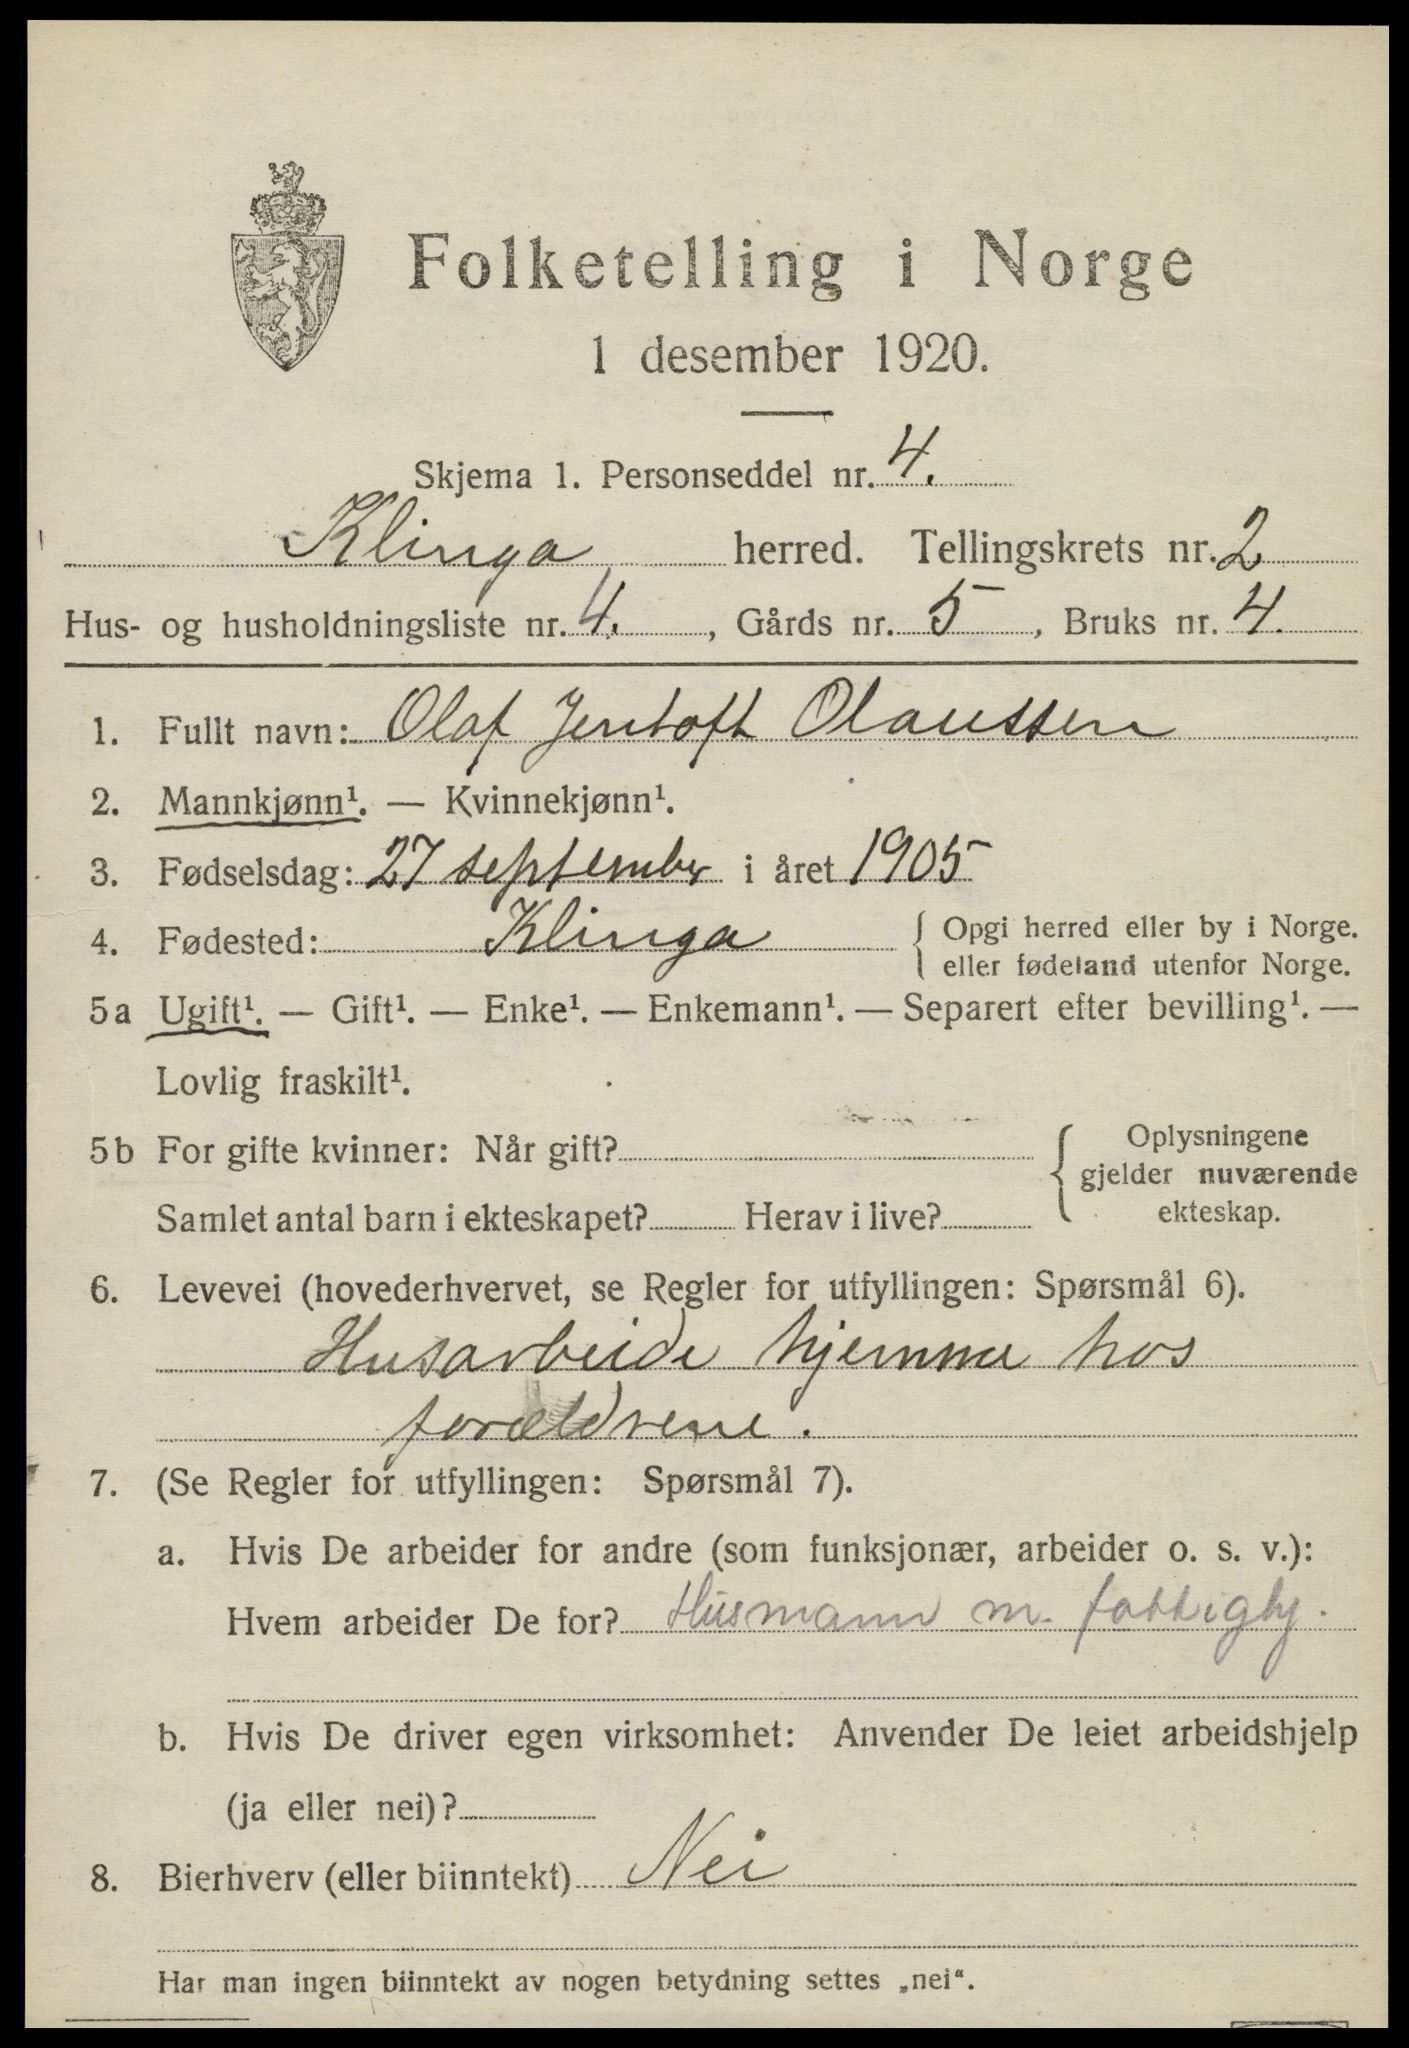 Folketelling i Norge
1 desember 1920.
Skjema 1. Personseddel nr. 4.
Klinga herred. Tellingskrets nr. 2
Hus- og husholdningsliste nr. 4., Gårds nr. 5, Bruks nr. 4.
1. Fullt navn: Olaf Jentoft Olaussen
2. Mannkjønn¹. — Kvinnekjønn¹.
3. Fødselsdag: 27 september i året 1905
4. Fødested: Klinga { Opgi herred eller by i Norge.
eller fødeland utenfor Norge.
5a Ugift¹. — Gift¹. — Enke¹. — Enkemann¹. — Separert efter bevilling¹. —
Lovlig fraskilt¹.
5b For gifte kvinner: Når gift? { Oplysningene
gjelder nuværende
Samlet antal barn i ekteskapet? Herav i live? ekteskap.
6. Levevei (hovederhvervet, se Regler for utfyllingen: Spørsmål 6).
Husarbeide hjemme hos
forældrene.
7. (Se Regler for utfyllingen: Spørsmål 7).
a. Hvis De arbeider for andre (som funksjonær, arbeider o. s. v.):
Hvem arbeider De for? Husmann m.
b. Hvis De driver egen virksomhet: Anvender De leiet arbeidshjelp
(ja eller nei)?
8. Bierhverv (eller biinntekt) Nei
Har man ingen biinntekt av nogen betydning settes „nei“.